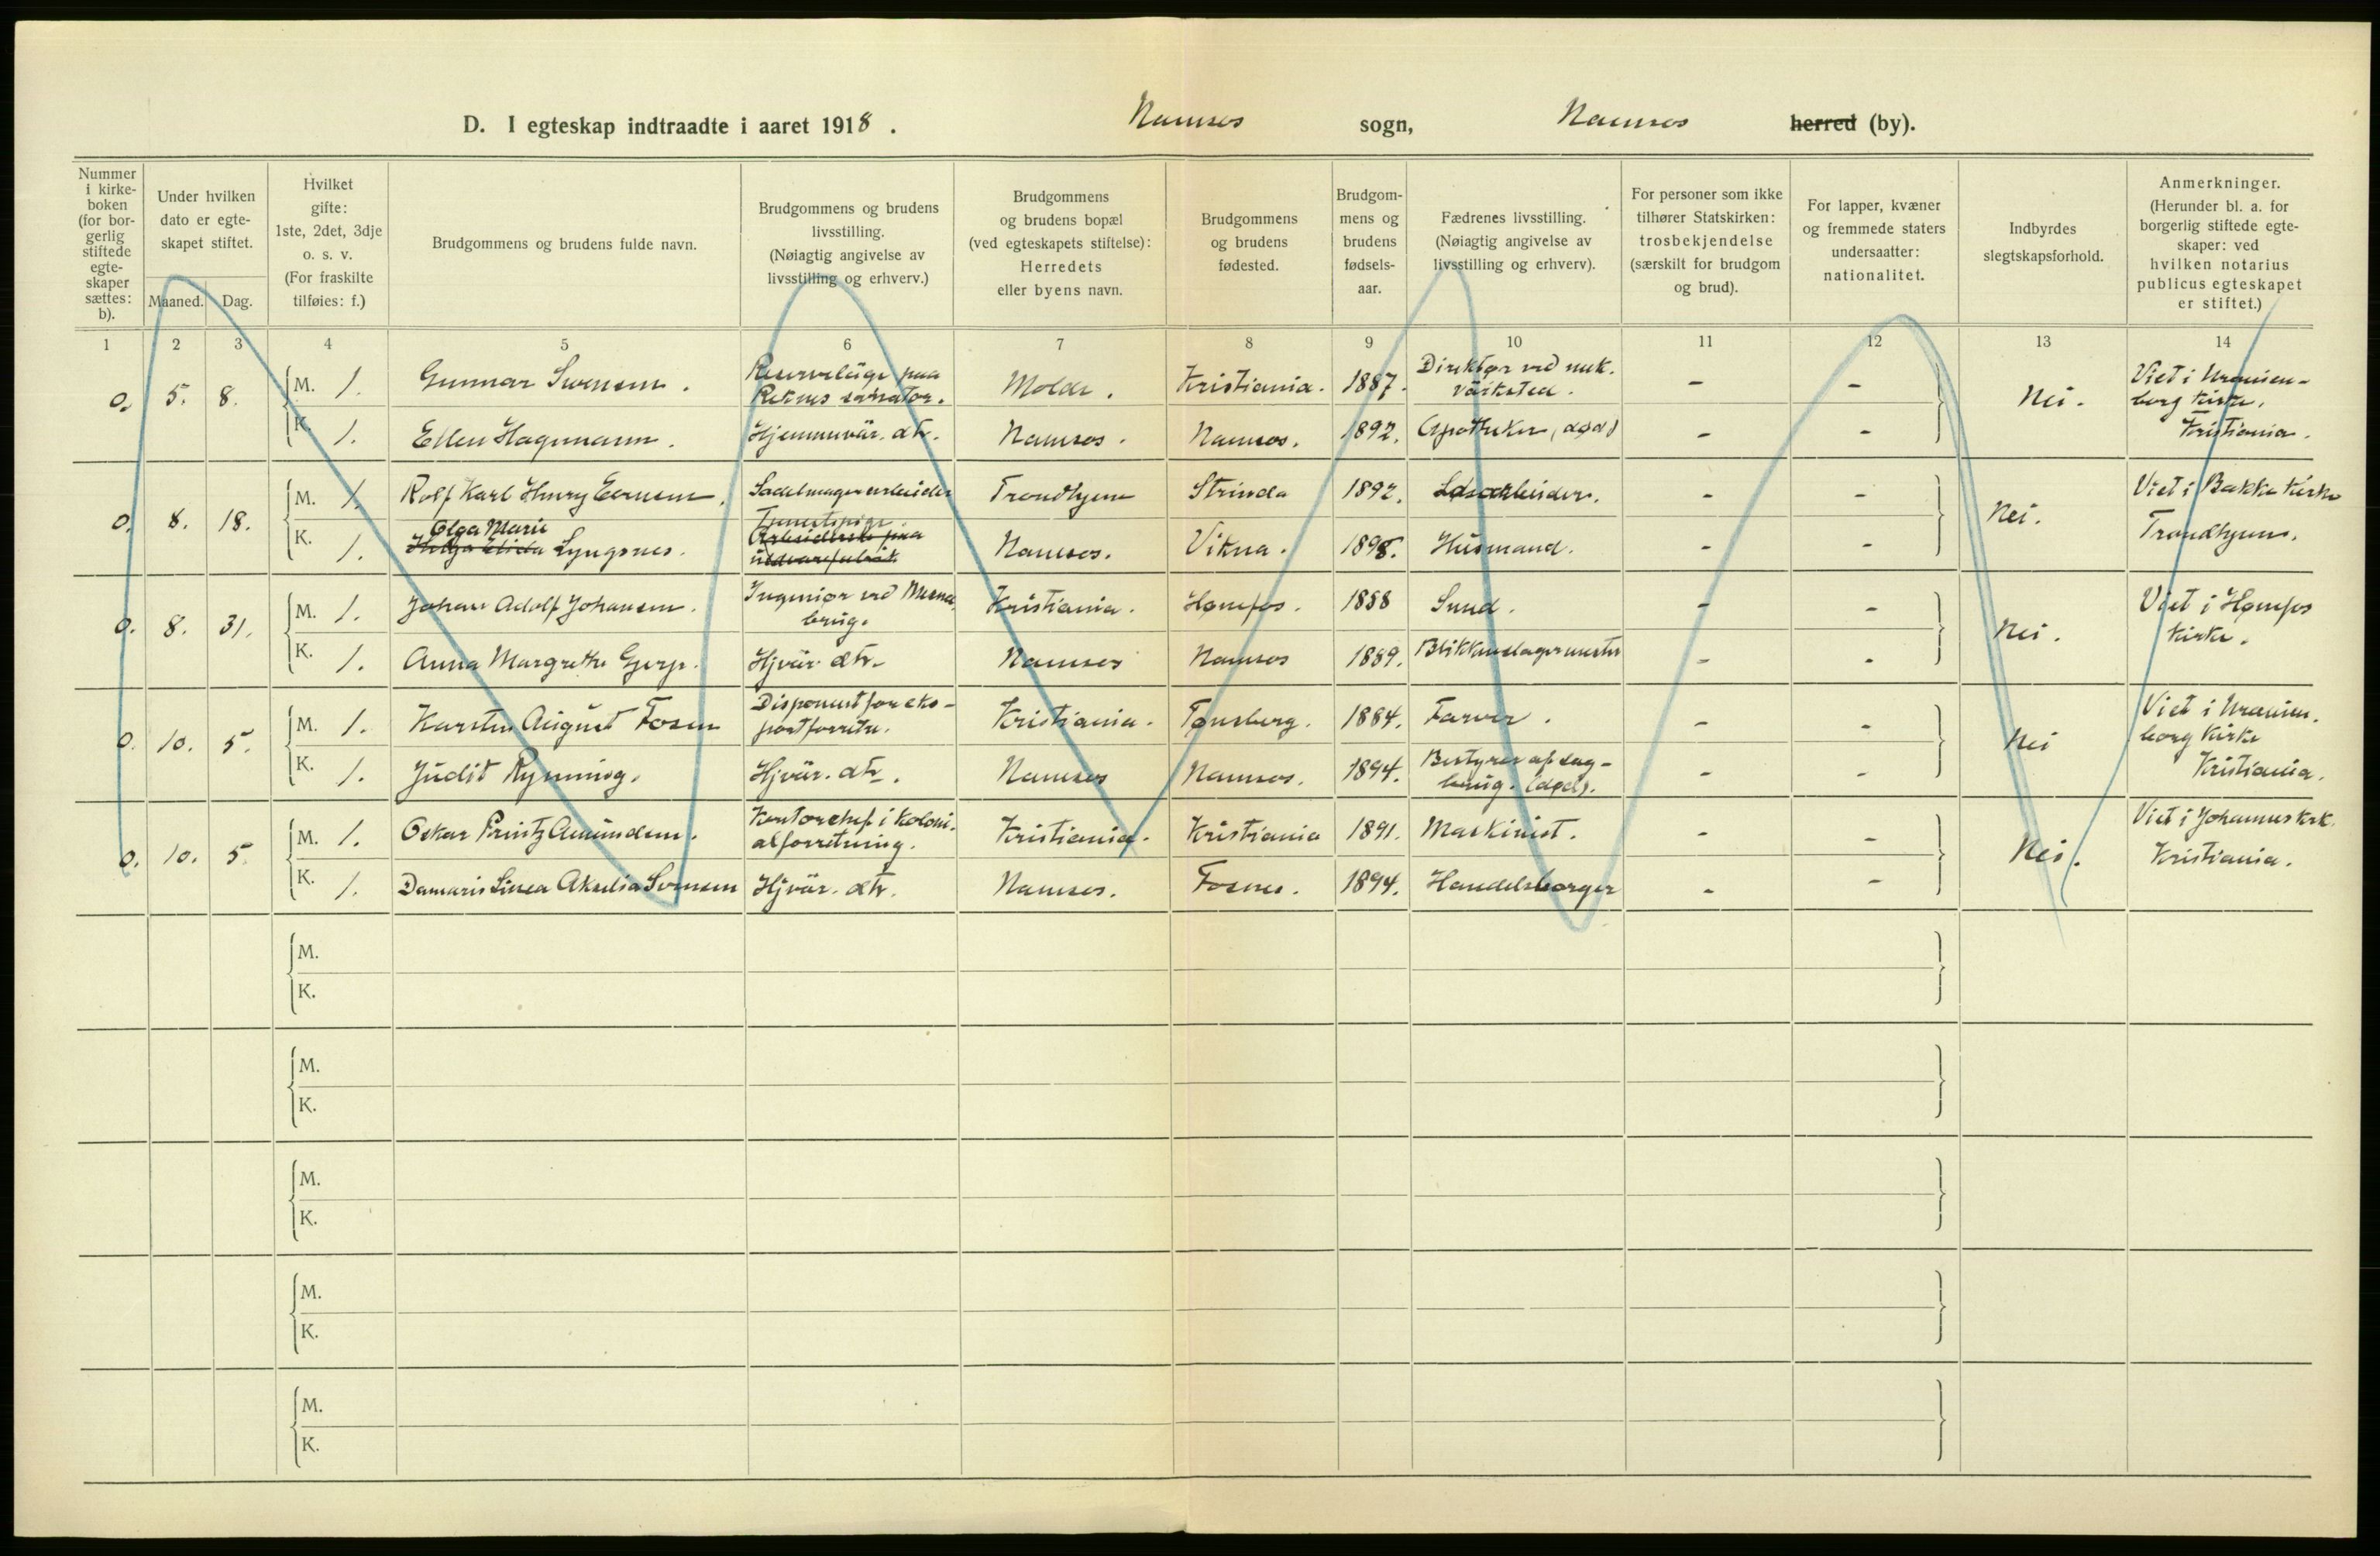 D. I egteskap indtraadte i aaret 1918. Namsos sogn, Namsos herred (by).
Nummer
i kirke-
boken
(for bor-
gerlig
stiftede
egte-
skaper
sættes:
b).
Under hvilken
dato er egte-
skapet stiftet.
Maaned. Dag.
Hvilket
gifte:
1ste, 2det, 3dje
o. s. v.
(For fraskilte
tilføies: f.)
Brudgommens og brudens fulde navn.
Brudgommens og brudens
livsstilling.
(Nøiagtig angivelse av
livsstilling og erhverv.)
Brudgommens
og brudens bopæl
(ved egteskapets stiftelse):
Herredets
eller byens navn.
Brudgommens
og brudens
fødested.
Brudgom-
mens og
brudens
fødsels-
aar.
Fædrenes livsstilling.
(Nøiagtig angivelse av
livsstilling og erhverv).
For personer som ikke
tilhører Statskirken:
trosbekjendelse
(særskilt for brudgom
og brud).
For lapper, kvæner
og fremmede staters
undersaatter:
nationalitet.
Indbyrdes
slegtskapsforhold.
Anmerkninger.
(Herunder bl. a. for
borgerlig stiftede egte-
skaper: ved
hvilken notarius
publicus egteskapet
er stiftet.)
1 2 3 4 5 6 7 8 9 10 11 12 13 14
0. 5. 8.
M. 1. Gunnar Svensen. Reservelæge paa
Reknes sanator. Molde. Kristiania. 1887. Direktør ved mek.
værksted. - -
K. 1. Ellen Hagemann. Hjemmevær. dtr. Namsos. Namsos. 1892. Apotheker (død) - -
Nei.
Viet i Uranien-
borg kirke,
Kristiania.
0. 8. 18.
M. 1. Rolf Karl Henry Evensen. Sadelmagerarbeider Trondhjem Strinda 1892. Løsarbeider. - -
K. 1. Olga Marie
Lyngsnes. Tjenestepige.
Arbeiderske paa
Namsos. Vikna. 1898. Husmand. - -
Nei.
Viet i Bakke kirke
Trondhjem.
0. 8. 31.
M. 1. Johan Adolf Johansen. Ingeniør ved Mesna
brug. Kristiania. Hønefos. 1888 Smed. - -
K. 1. Anna Margrethe Hjvær. dtr. Namsos Namsos 1889. Blikkenslagermester - -
Nei.
Viet i Hønefos
kirke.
0. 10. 5.
M. 1. Karsten August Fosen Disponent for eks-
portforretn. Kristiania. Tønsberg. 1884. Farver. - -
K. 1. Judit Rynning. Hjvær. dtr. Namsos Namsos. 1894. Bestyrer af sag-
brug. (død). - -
Nei
Viet i Uranien.
borg kirke
Kristiania.
0. 10. 5.
M. 1. Oskar Printz Amundsen. Kontorchef i koloni-
alforretning. Kristiania. Kristiania 1891. Maskinist. - -
K. 1. Damaris Linea Akselia Svensen Hjvær. dtr. Namsos. Fosnes. 1894. Handelsborger - -
Nei.
Viet i Johannes kirk.
Kristiania.
M.
K.
M.
K.
M.
K.
M.
K.
M.
K.